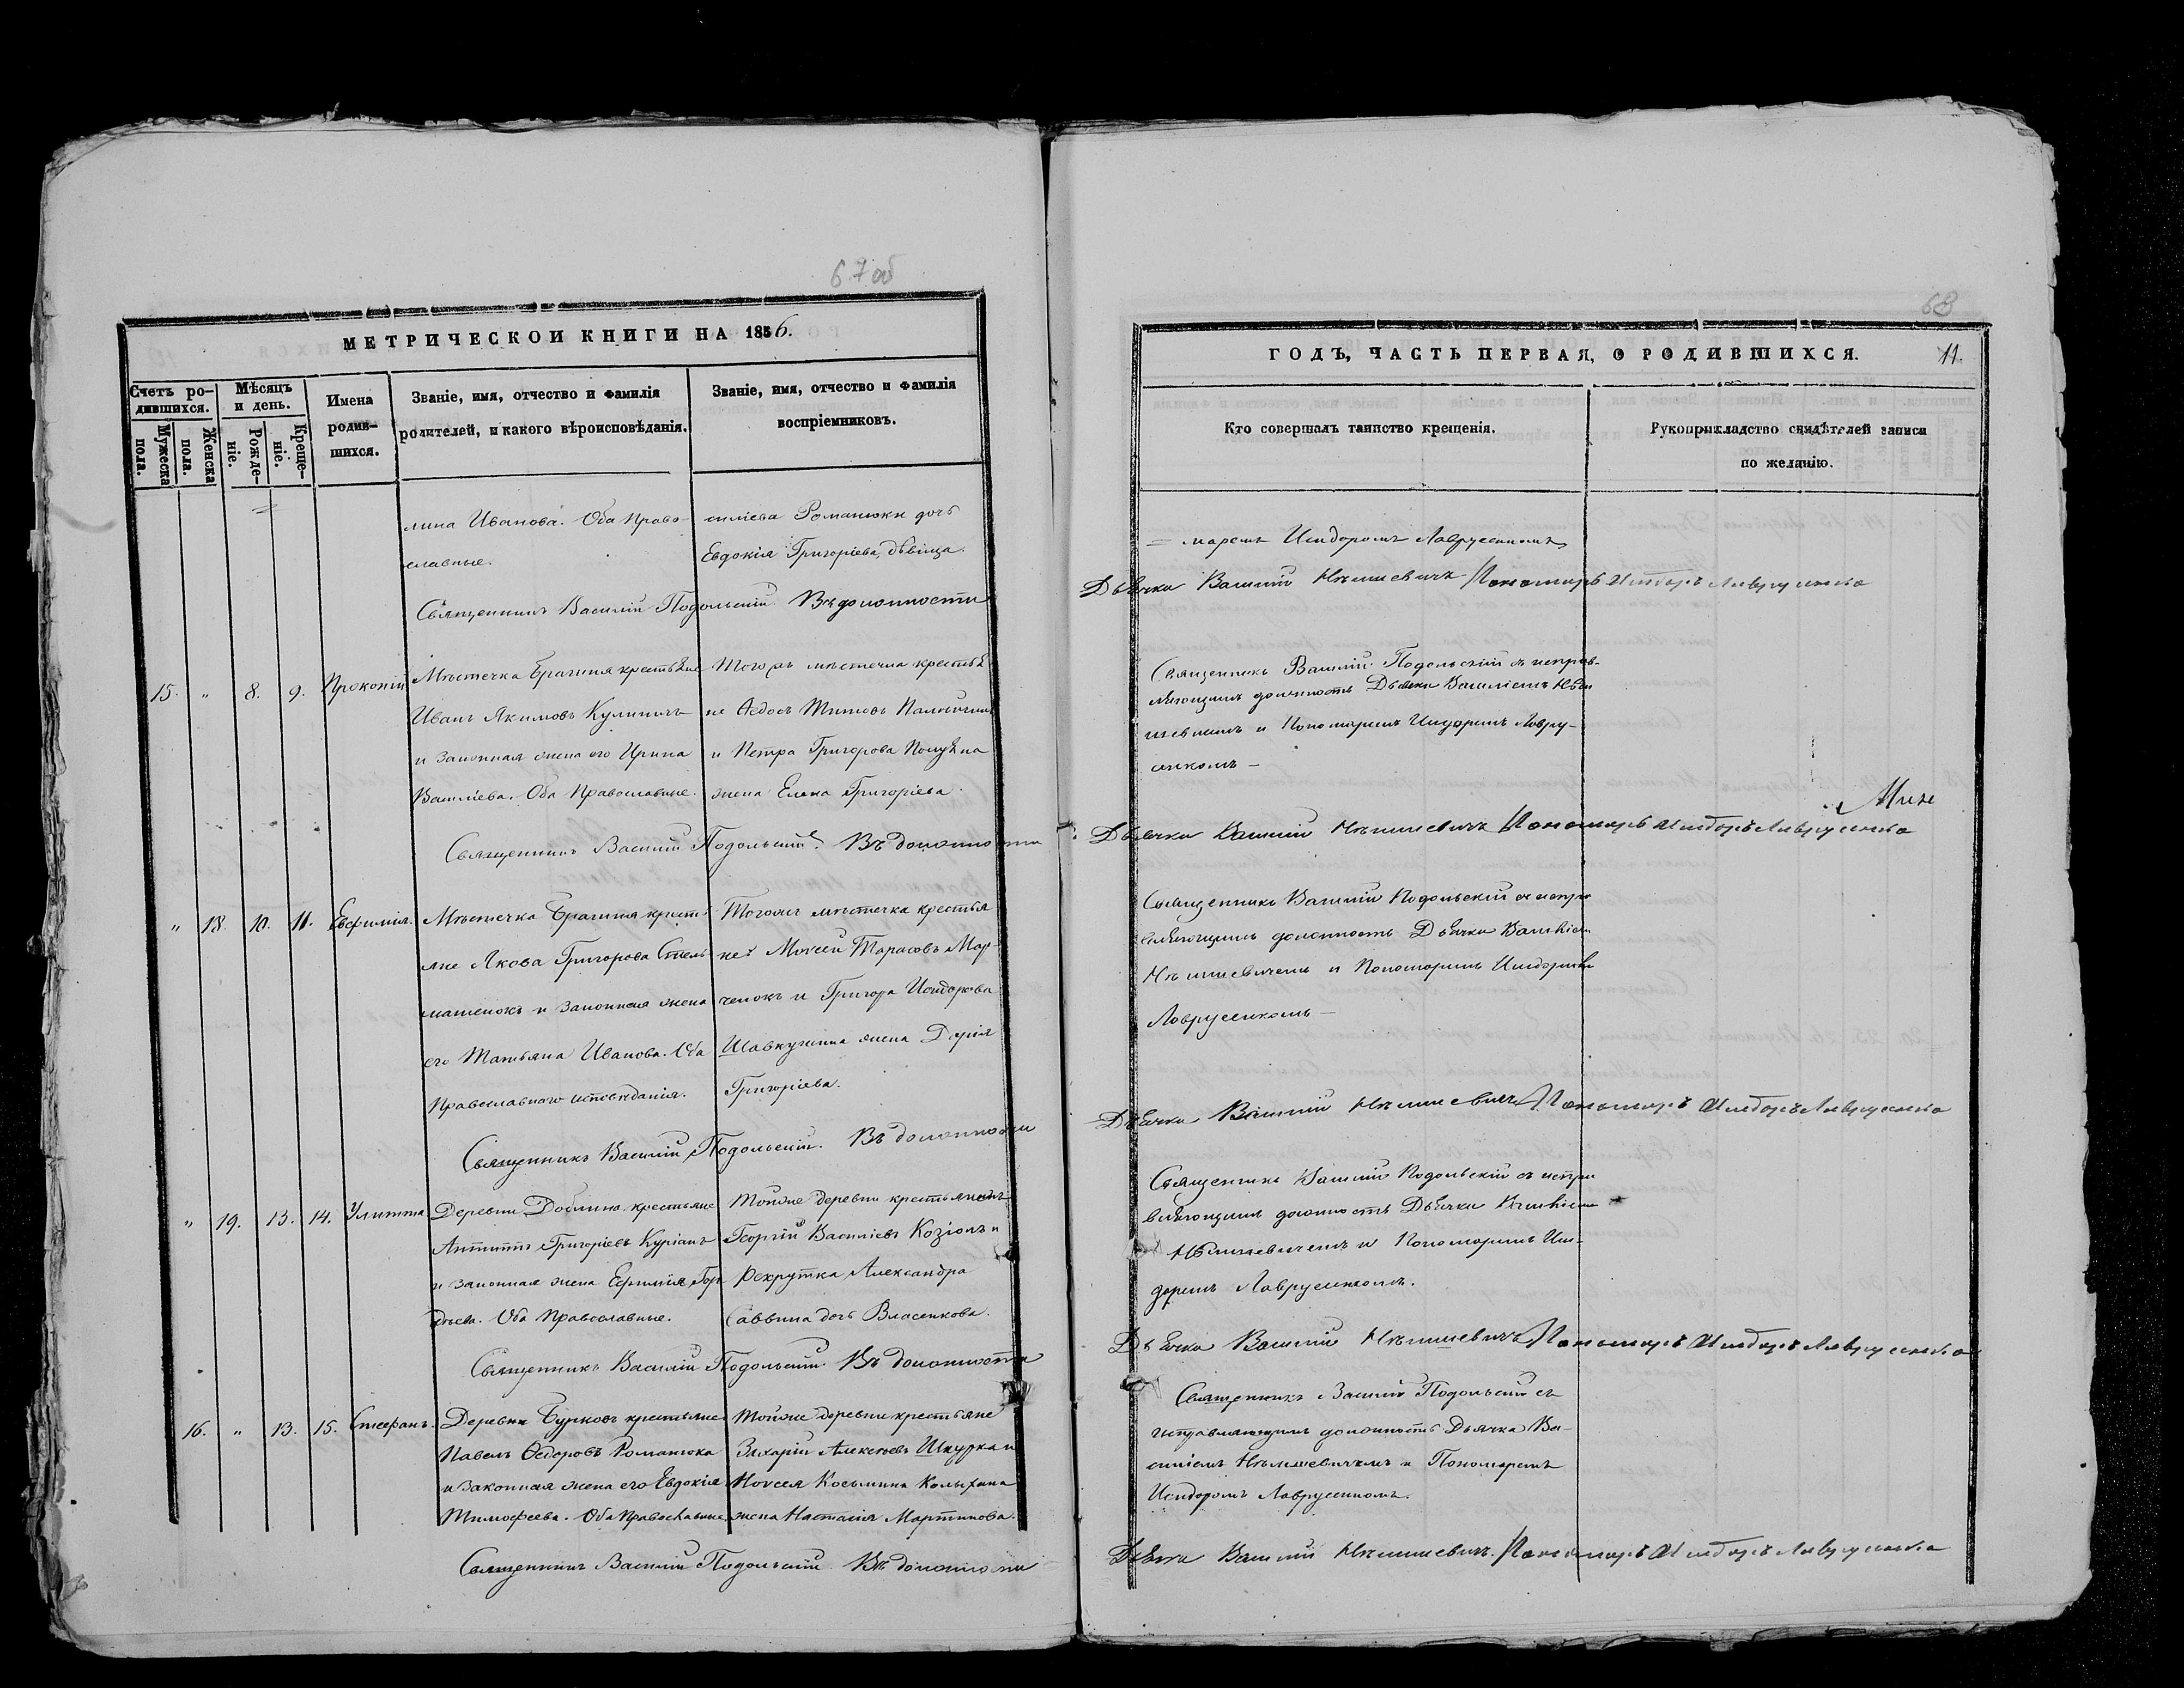 67об
МЕТРИЧЕСКОЙ КНИГИ НА 1856.
Счетъ родившихся.
Мѣсяцъ и день.
Имена родившихся.
Званіе, имя, отчество и фамилія родителей, и какого вѣроисповѣданія.
Званіе, имя, отчество и фамилія воспріемниковъ.
Мужеска пола.
Женска пола.
Рожденіе.
Крещеніе.
лина Иванова. Оба Право-
славные.
силіева Романюки дочь
Евдокія Григоріева, дѣвица.
Священникъ Василій Подольскій. Въ должности
15. " 8. 9. Прокопій
Мѣстечка Брагиня крестьяне
Иванъ Якимовъ Кулиничъ
и законная жена его Ирина
Василіева. Оба Православные.
Тогожъ мѣстечка крестья
не Ѳедосъ Титовъ
и Петра Григорова
жена Елена Григоріева.
Священникъ Василій Подольскій. Въ должности
" 18. 10. 11. Евфимія.
Мѣстечка Брагиня кресть
яне Якова Григорова Стель
машенокъ и законная жена
его Татьяна Иванова. Оба
Православнаго исповѣданія.
Тогожъ мѣстечка крестья
не: Моисей Тарасовъ Мар-
ченокъ и Григора Исидорова
Шавкунина жена Дарія
Григоріева.
Священникъ Василій Подольскій. Въ должности
" 19. 13. 14. Улитта
Деревни крестьяне
Антипъ Григоріевъ Куріанъ
и законная жена Евфимія Гор
дѣева. Оба Православные.
Тойже деревни крестьянинъ
Георгій Василіевъ Козіолъ и
рекрутка Александра
Саввина дочь Власенкова.
Священникъ Василій Подольскій. Въ должности
16. " 13. 15. Стефанъ.
Деревни Бурковъ крестьяне
Павелъ Ѳедоровъ Романюка
и законная жена его Евдокія
Тимофеева. Оба Православные
Тойже деревни крестьяне
Захарій Алексѣевъ Шкурка и
Моисея Косьмина
жена Настасія Мартинова.
Священникъ Василій Подольскій. Въ должности
68
ГОДЪ, ЧАСТЬ ПЕРВАЯ, О РОДИВШИХСЯ.
11.
Кто совершалъ таинство крещенія.
Рукоприкладство свидѣтелей записи
по желанію.
= маремъ Исидоромъ Лаврусенкомъ
Дьячка Василій Нѣмшевичъ Пономарь Исидоръ Лаврусенко
Священникъ Василій Подольскій съ исправ-
ляющимъ должность Дьячка Василіемъ Нѣм
шевичемъ и Пономаремъ Исидоромъ Лавру-
сенкомъ –
Дьячка Василій Нѣмшевичъ Пономарь Исидоръ Лаврусенко
Священникъ Василій Подольскій съ испра
вляющимъ должность Дьячка Василіемъ
Нѣмшевичемъ и Пономаремъ Исидоромъ
Лаврусенкомъ –
Дьячка Василій Нѣмшевичъ Пономарь Исидоръ Лаврусенко
Священникъ Василій Подольскій съ испра
вляющимъ должность Дьячка Василіемъ
Нѣмшевичемъ и Пономаремъ Иси-
доромъ Лаврусенкомъ.
Дьячка Василій Нѣмшевичъ Пономарь Исидоръ Лаврусенко
Священникъ Василій Подольскій съ
исправляющимъ должность Дьячка Ва-
силіемъ Нѣмшевичемъ и Пономаремъ
Исидоромъ Лаврусенкомъ.
Дьячка Василій Нѣмшевичъ. Пономарь Исидоръ Лаврусенко